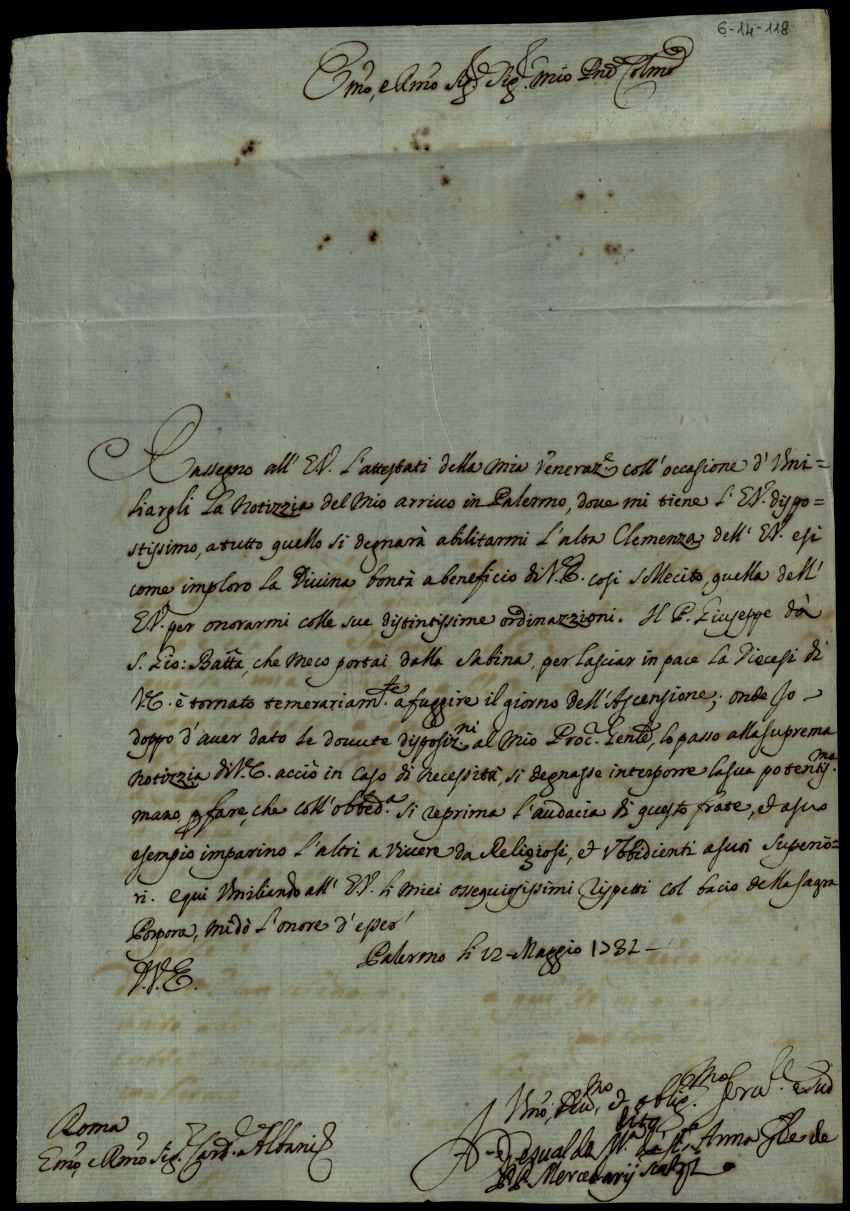 6-14-118
Emo, e Rmo Sigr. Sigr. mio Pne Colmo
Rassegno all' E.V. l'attestati della mia Veneraze. coll'occasione d'Umi=
liargli la Notizzia del Mio arrivo in Palermo, dove mi tiene l'E.V. dispo=
stissimo, a tutto quello si degnarà abilitarmi l'alta Clemenza dell' E.V. e si
come imploro la Divina bontà a beneficio di V.E. cosi sollecito, quella dell'
E.V. per onorarmi colle sue distintissime ordinazzioni. Il P. Giuseppe dà
S. Gio: Batta, che meco portai dalla Sabina, per lasciar in pace la Diecesi di
V.E. è tornato temerariamte. a fuggire il giorno dell'Ascensione; onde Io
doppo d'aver dato le dovute disposizni al Mio Proc. Genle, lo passo alla suprema
notizzia di V.E. acciò in caso di necessità, si degnasse interporre la sua potentissma.
mano, per fare, che coll'obbeda. si reprima l'audacia di questo frate, ed a suo
esempio imparino l'altri a vivere da Religiosi, ed Ubbidienti a suoi Superio=
ri. e qui Umiliando all' E.V. li miei ossequiosissimi rispetti col bacio della sagra
Porpora, mi dò l'onore d'esser'
Palermo li 12 Maggio 1782
D.V.E.
Umo, Divmo, ed obligmo Serve. e Sud
dito
Gesualdo Ma. da St. Anna Gle de
PP. Mercedarij Scalzi
Roma
Emo, e Rmo Sigr. Card. Albani